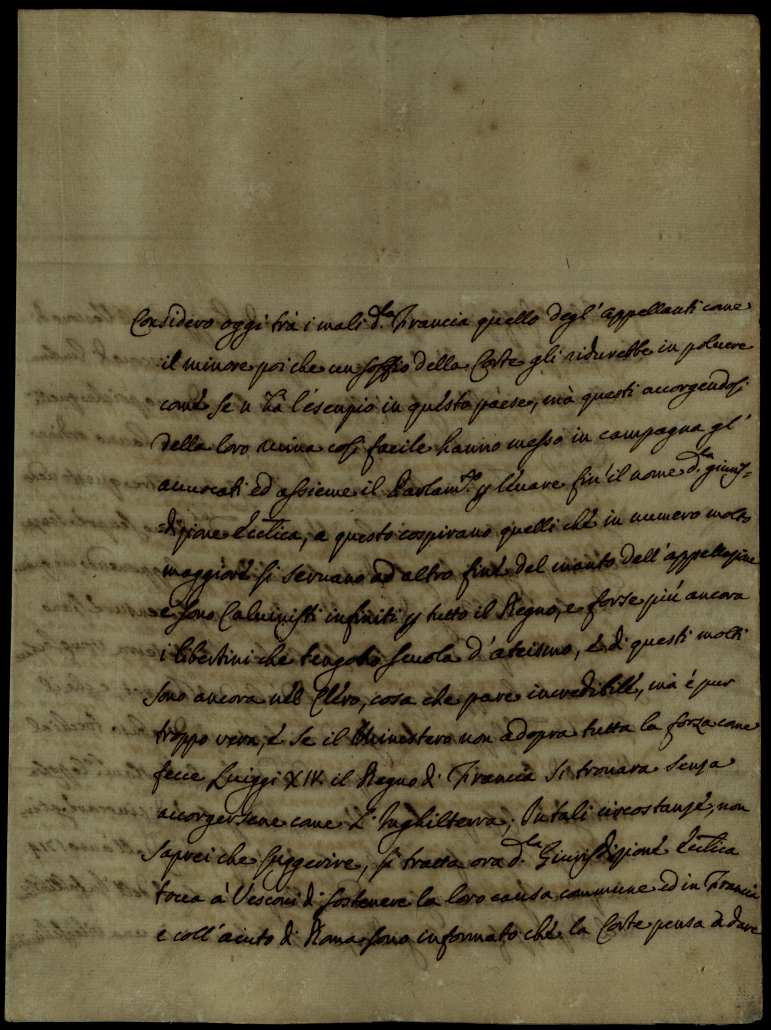 Considero oggi trà i mali d.la Francia quello degl' appellanti come
il minore poi che un soffio della Corte gli ridurebbe in poluere
come se n hà l'esempio in questo paese, mà questi accorgendosi
della loro ruina cosi facile hanno messo in campagna gl'
auuocati ed assieme il Parlam.to p leuare fin' il nome d.la giuris=
=dizione Ecctica, a questo cospirano quelli che in numero molto
maggiore si seruano ad altro fine del manto dell' appellazione
e sono Caluinisti infiniti p tutto il Regno, e forse più ancora
i libertini che tengono scuola d'ateismo, e di questi molti
sono ancora nel Clero, cosa che pare incredibile, mà è pur
troppo vera, e se il Ministero non adopra tutta la forza come
fece Luiggi XIV il Regno di Francia si trouara senza
accorgersene come l'Inghilterra; In tali circostanze, non
saprei che suggerire, si tratta ora d.la Giurisdizione Ecctica
tocca à Vescoui di sostenere la loro causa commune ed in Francia
e coll' aiuto di Roma sono informato che la Corte pensa à dare